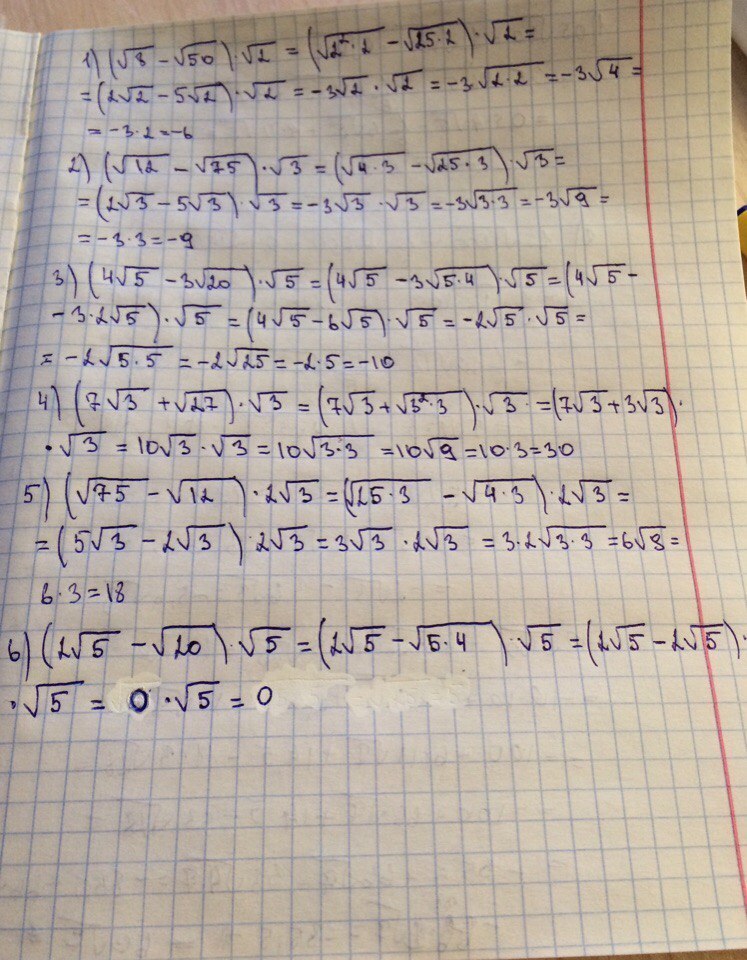 1) (√8 - √50)·√2 = (√2²·2 - √25·2)·√2 =
= (2√2 - 5√2)·√2 = -3√2 · √2 = -3√2·2 = -3√4 =
= -3·2 = -6
2) (√12 - √75)·√3 = (√4·3 - √25·3)·√3 =
= (2√3 - 5√3)·√3 = -3√3 · √3 = -3√3·3 = -3√9 =
= -3·3 = -9
3) (4√5 - 3√20)·√5 = (4√5 - 3√5·4)·√5 = (4√5 -
- 3·2√5)·√5 = (4√5 - 6√5)·√5 = -2√5 · √5 =
= -2√5·5 = -2√25 = -2·5 = -10
4) (7√3 + √27)·√3 = (7√3 + √3²·3)·√3 = (7√3 + 3√3)·
·√3 = 10√3 · √3 = 10√3·3 = 10√9 = 10·3 = 30
5) (√75 - √12)·2√3 = (√25·3 - √4·3)·2√3 =
= (5√3 - 2√3)·2√3 = 3√3 · 2√3 = 3·2√3·3 = 6√9 =
6·3 = 18
6) (2√5 - √20)·√5 = (2√5 - √5·4)·√5 = (2√5 - 2√5)·
·√5 = 0·√5 = 0